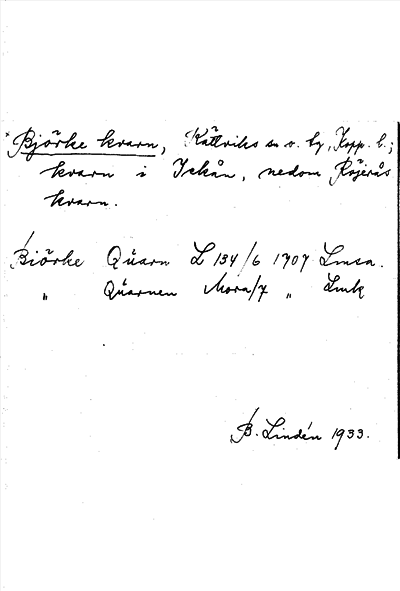 Björke kvarn, Rättviks sn o. by, Kopp. l.;
kvarn i Ickån, nedom Röjerås
kvarn.
Biörke Qüarn L 134/6 1707 Lmsa.
„ Qüarnen Mora/7 „ Lmk
B. Lindén 1933.